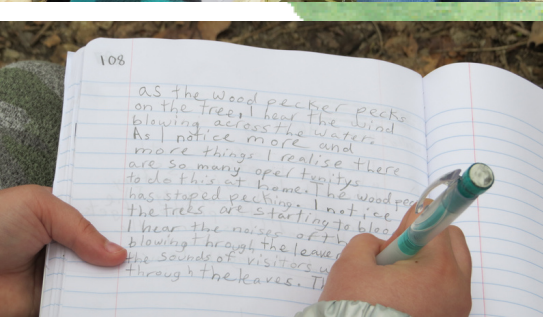 108
as the wood pecker pecks
on the tree, I hear the wind
blowing across the water.
As I notice more and
more things I realise there
are so many opertunitys
to do this at home. The wood pec
has staped pecking. I notice
the trees are starting to bloo
I hear the noises of th
blowing through the leave
the sounds of visitors w
through the leaves. Th